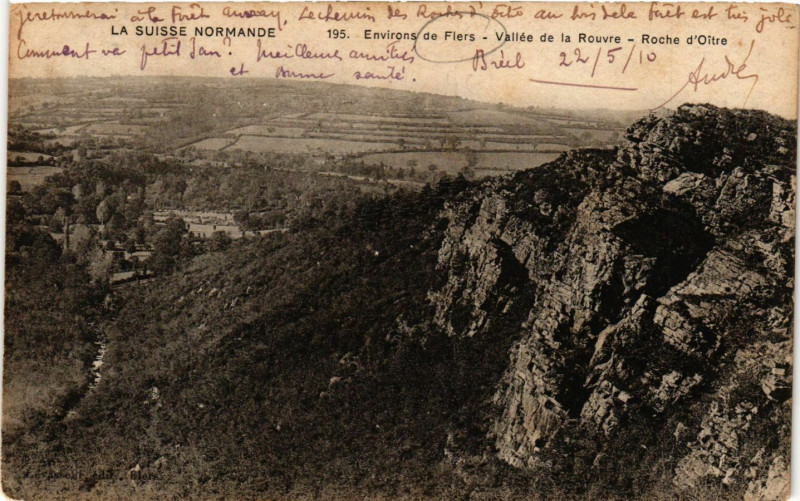 je retournerai à la Forêt Auvray, Le chemin des Roches d'Oite au bis de la forêt est très joli.
LA SUISSE NORMANDE 195. Environs de Flers - Vallée de la Rouvre - Roche d'Oître
Comment va petit Jan? meilleures amitiés
et Bonne santé.
Bréel 22/5/10
André